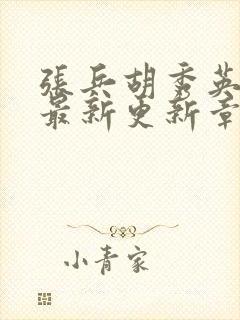 張兵胡秀英
最新更新章
小青家